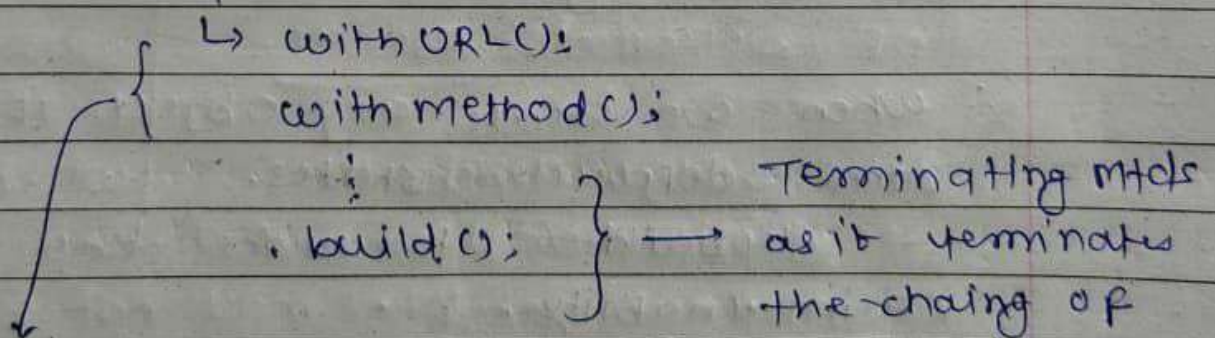 ↳ with URL();
with method();
⋮
. build();
Terminating mtds
as it terminates
the chaing of